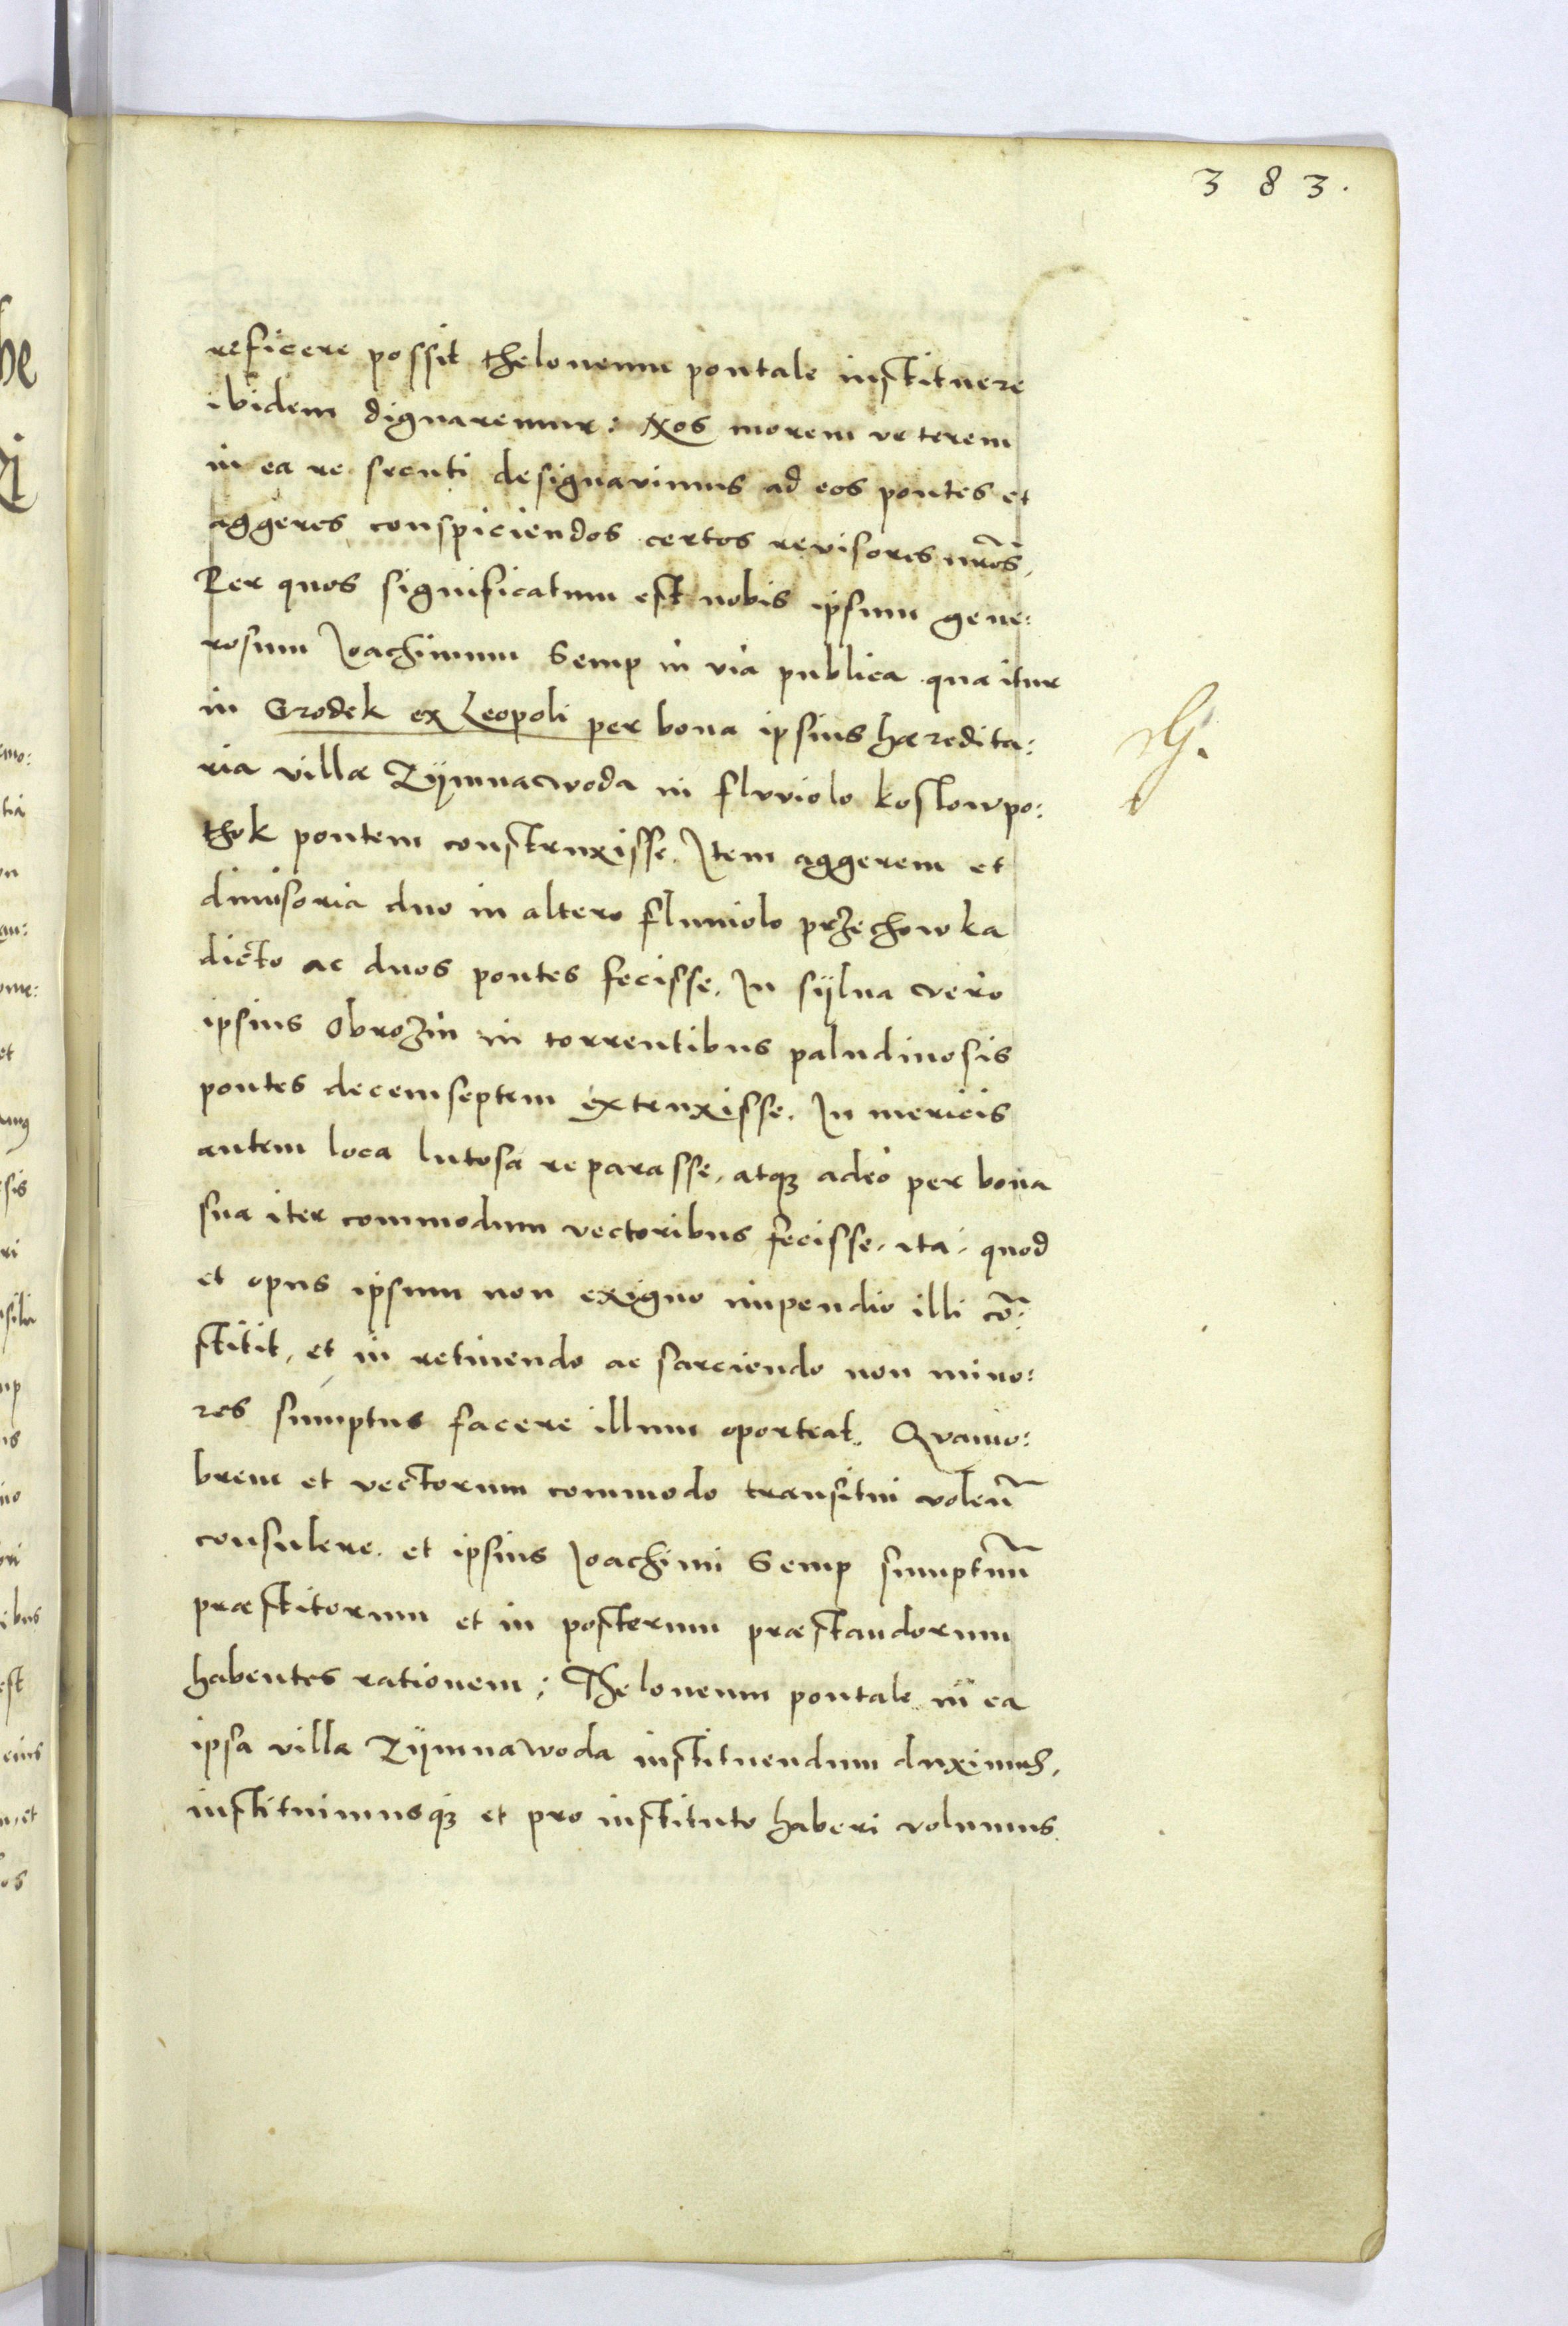 383.
reficere possit theloneum pontale instituere
ibidem dignaremur: Nos morem veterem
in ea re secuti designavimus ad eos pontes et
aggeres conspiciendos certos revisores nr̃os,
Per quos significatum est nobis ipsum gene:
rosum Joachimum Semp in via publica qua itur
in Grodek ex Leopoli per bona ipsius hæredita:
ria villæ Zÿmnawoda in flvviolo koslowpo:
thok pontem construxisse. Item aggerem et
dimisoria duo in altero fluuiolo przechowka
dicto ac duos pontes fecisse. In sÿlua vero
ipsius Obrozin in torrentibus paludinosis
pontes decemseptem extruxisse. In mericis
autem loca lutosa reparasse, atqȝ adeo per bona
sua iter commodum vectoribus fecisse, ita, quod
et opus ipsum non exiguo impendio illi cõ:
stitit, et in retinendo ac sarciendo non mino:
res sumptus facere illum oporteat. Qvamo:
brem et vectorum commodo transitui volen̄
consulere. et ipsius Joachimi Semp sumptuū
præstitorum et in posterum præstandorum
habentes rationem; Theloneum pontale in ea
ipsa villa Zÿmnawoda instituendum duximus,
instituimusqȝ et pro instituto haberi volumus.